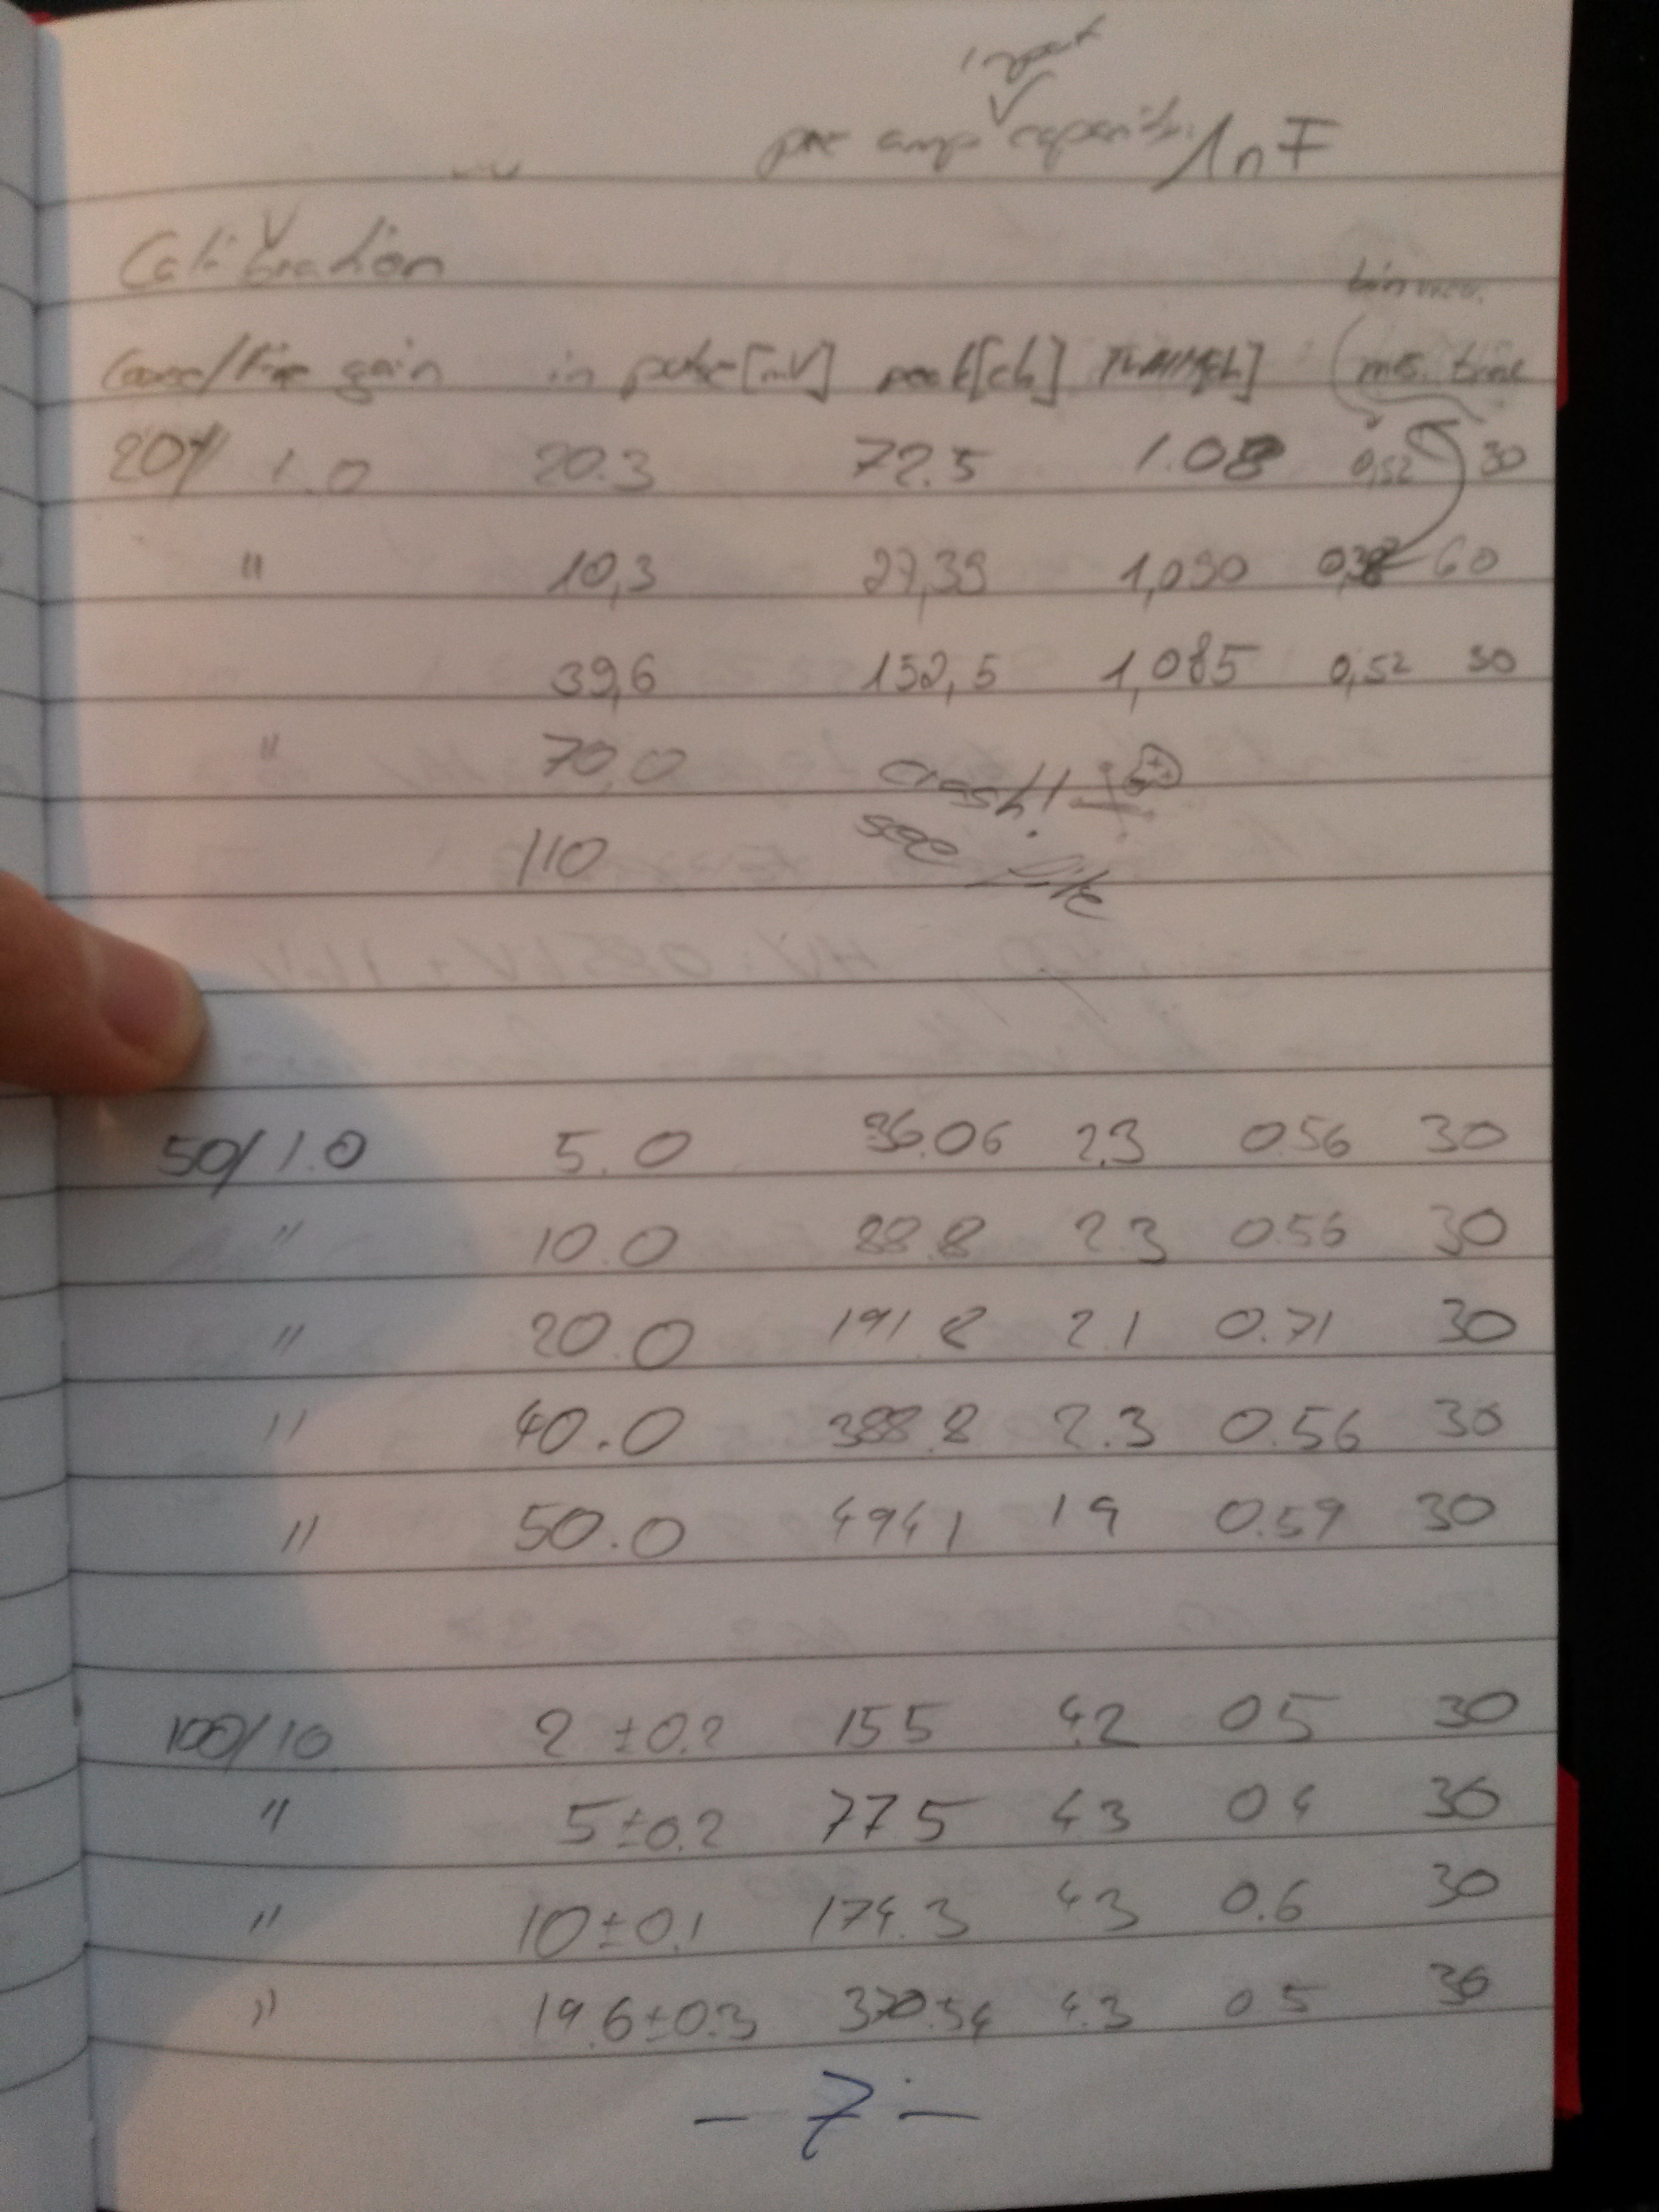 input
pre amp capacit. 1nF
Calibration
Coarse/fine gain in pulse [mV] peak [ch] FWHM [ch] mes. time
20/ 1.0 20.3 72.5 1.08 0,52 30
" 10,3 27,39 1,090 60
39,6 152,5 1,085 0,52 30
" 70,0 crash!
110 see file
50/1.0 5.0 36.06 2.3 0.56 30
" 10.0 88.8 2.3 0.56 30
" 20.0 191.8 2.1 0.71 30
" 40.0 388.8 2.3 0.56 30
" 50.0 494.1 1.9 0.59 30
100/1.0 2 ±0.2 15.5 4.2 0.5 30
" 5±0.2 77.5 4.3 0.4 30
" 10±0.1 174.3 4.3 0.6 30
" 19.6±0.3 370.54 4.3 0.5 30
– 7 –